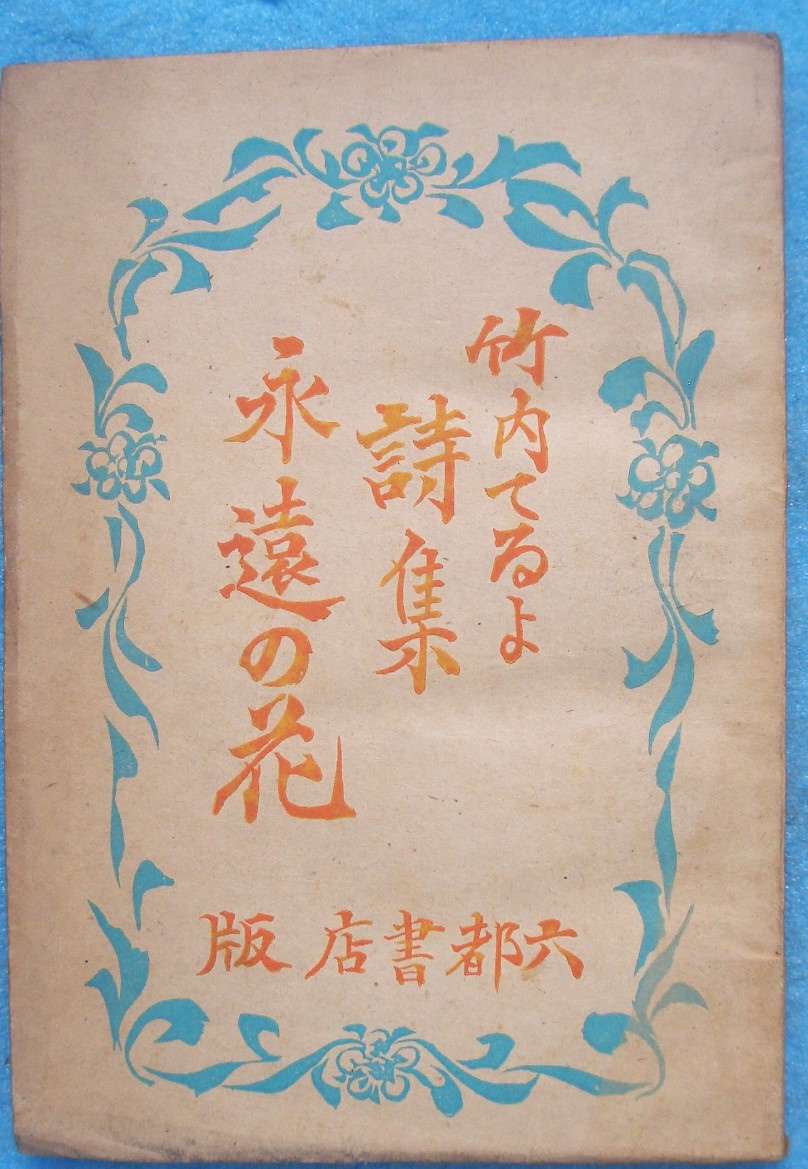 竹内てるよ
詩集
永遠の花
六都書店版